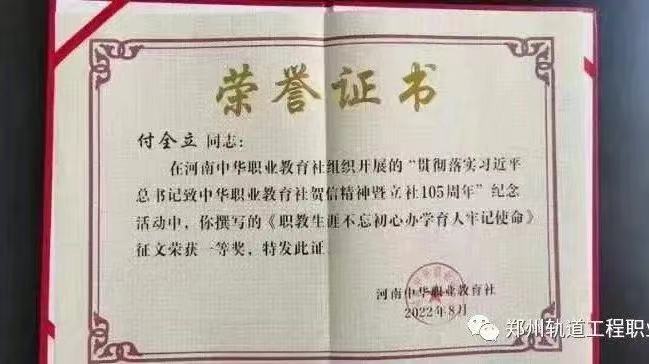 荣誉证书
付全立 同志：
在河南中华职业教育社组织开展的“贯彻落实习近平
总书记致中华职业教育社贺信精神暨立社105周年”纪念
活动中，你撰写的《职教生涯不忘初心办学育人牢记使命》
征文荣获一等奖，特发此证
河南中华职业教育社
2022年8月
郑州轨道工程职业